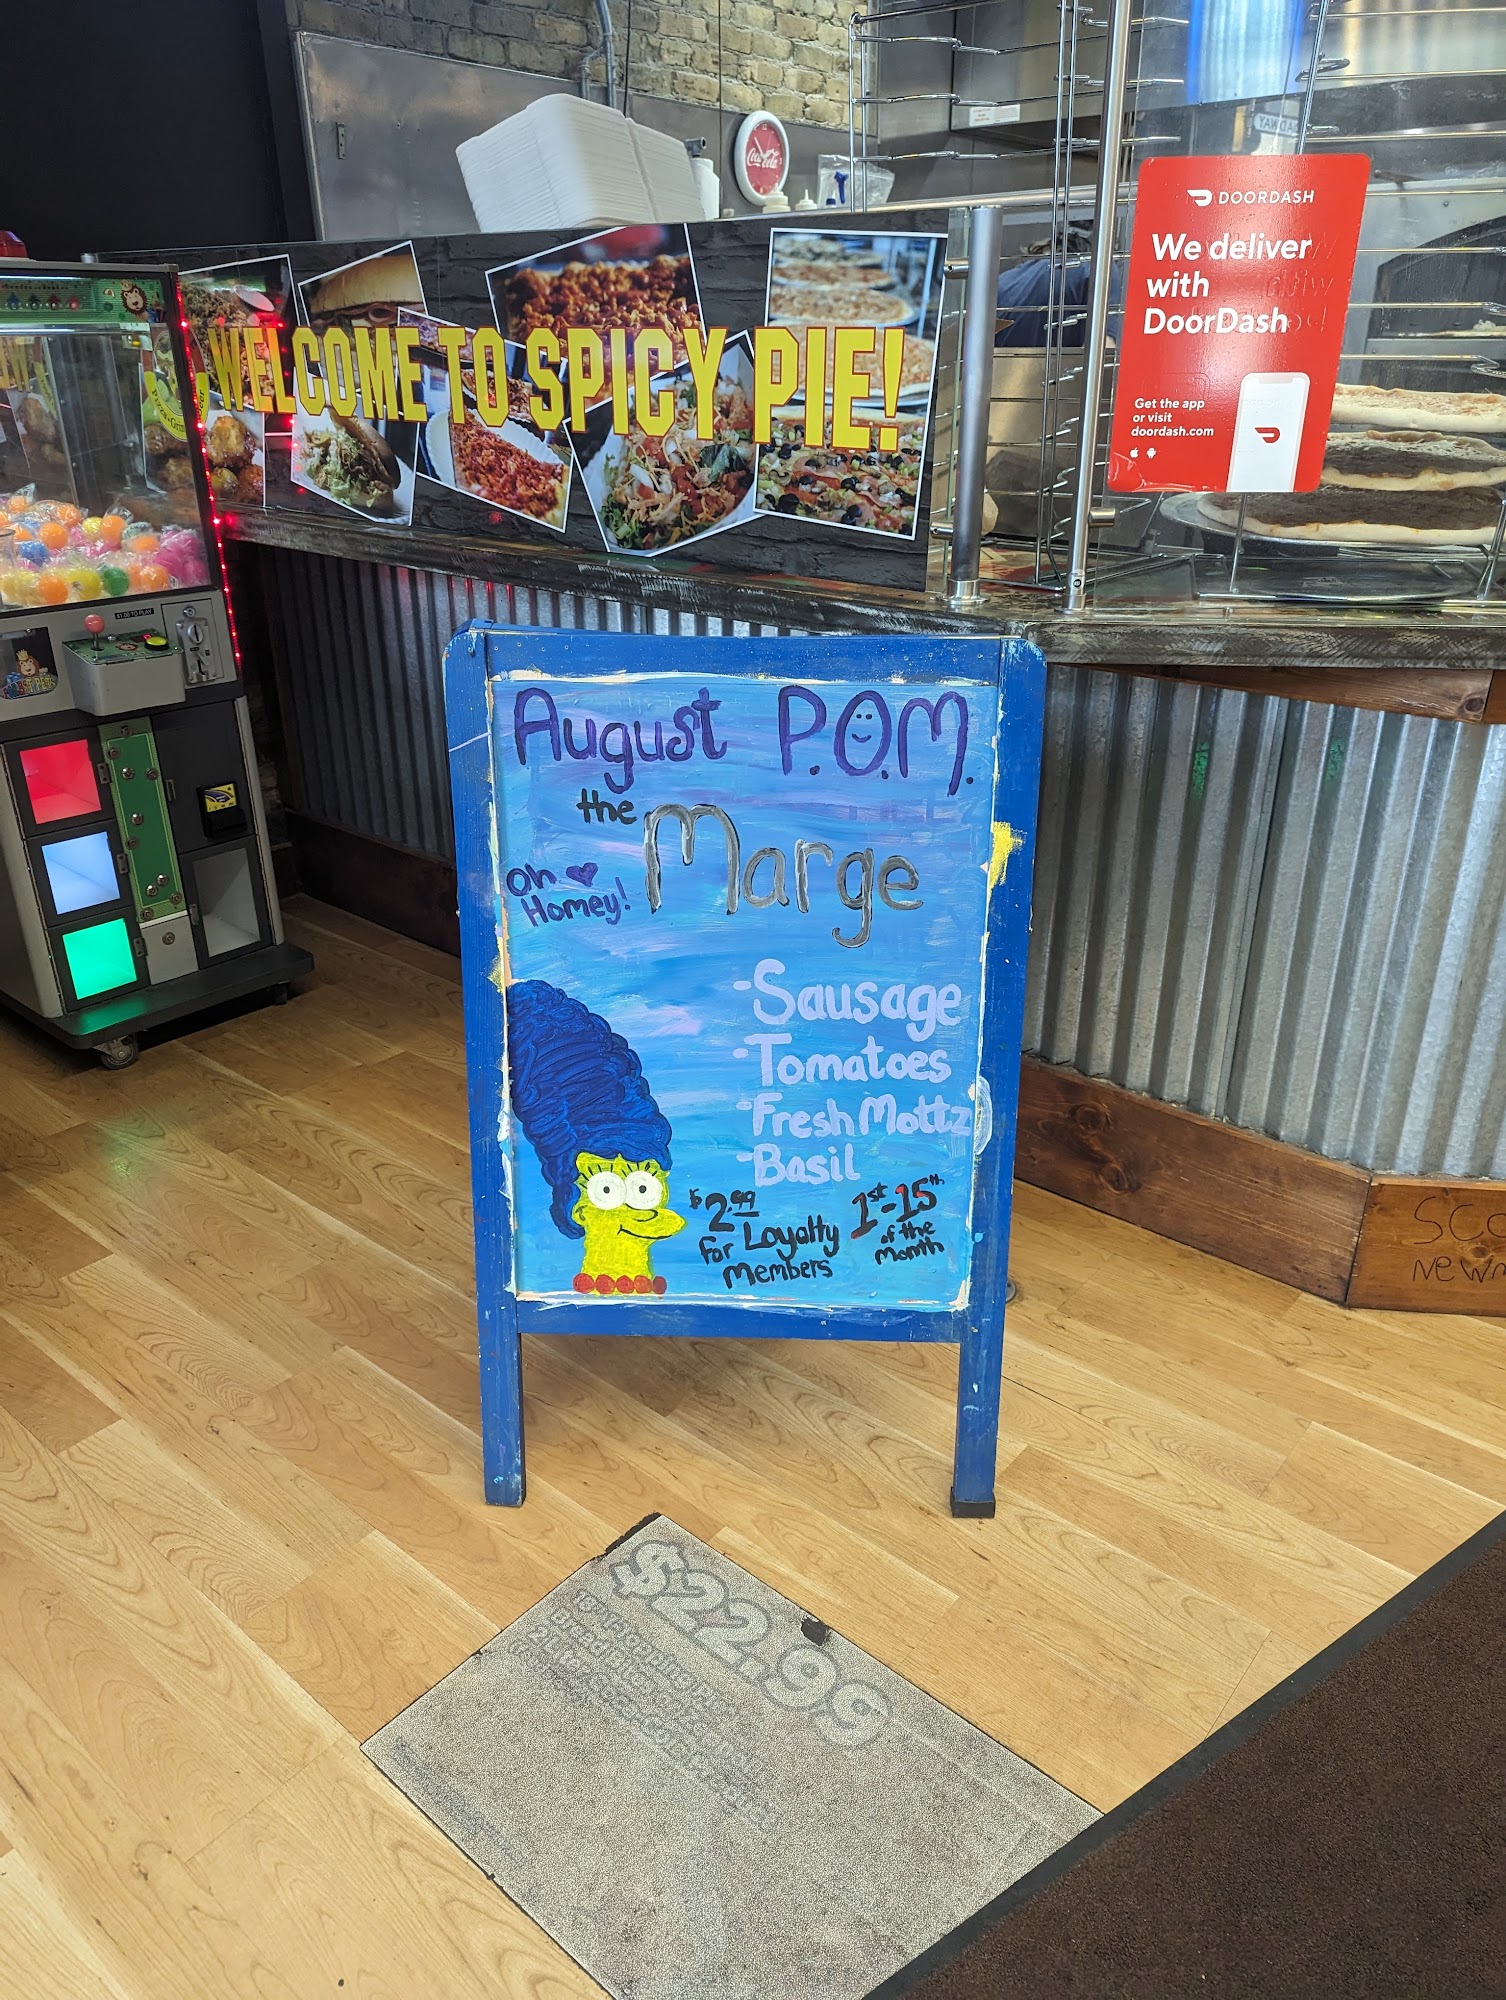 Coca-Cola
DOORDASH
We deliver
with
DoorDash
Get the app
or visit
doordash.com
WELCOME TO SPICY PIE!
$1.00 TO PLAY
August P.O.M.
the
Marge
oh
Homey!
-Sausage
-Tomatoes
-Fresh Mottz
-Basil
$2.99
for Loyalty
Members
1st-15th
of the
Month
$22.99